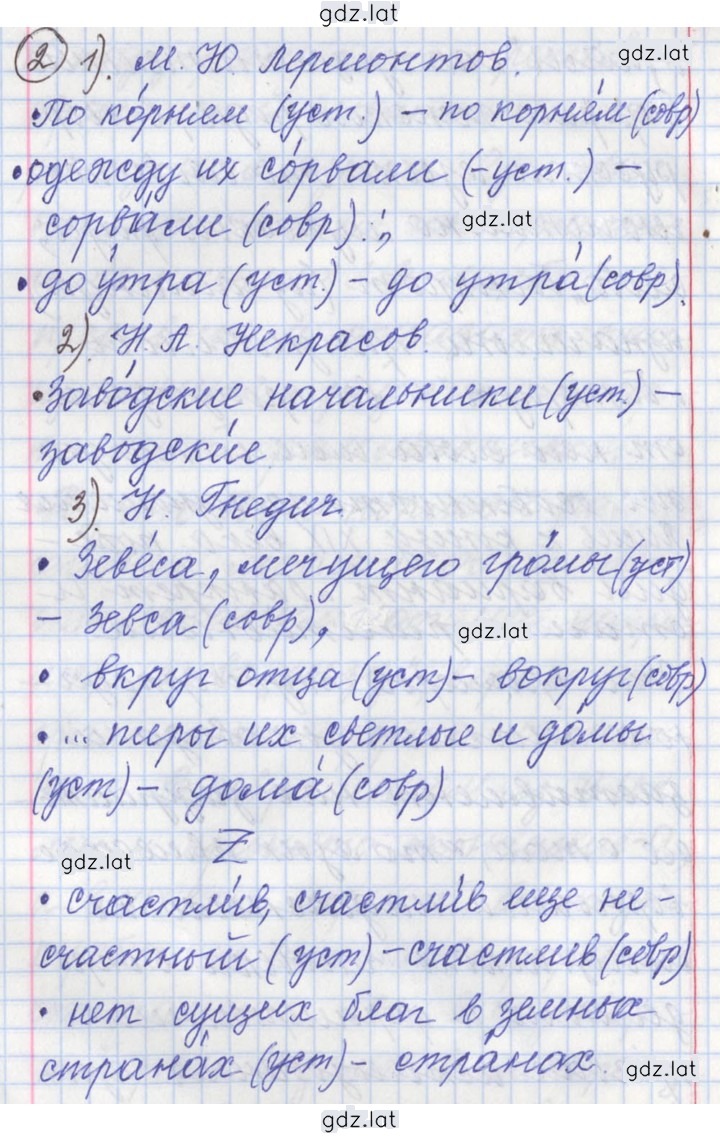 gdz.lat
2 1). М. Ю. Лермонтов. gdz.lat
• По ко́рнем (уст.) – по корня́м (совр)
• одежду их со́рвали (-уст.) –
сорва́ли (совр).; gdz.lat
• до у́тра (уст.) – до утра́ (совр).
2). Н. А. Некрасов.
• Заво́дские начальники (уст.) –
заводски́е
3). Н. Гнедич.
• Зеве́са, мечущего гро́мы (уст)
– Зевса (совр), gdz.lat
• вкруг отца (уст) – вокруг (совр)
• ... пиры их светлые и до́мы
(уст) – дома́ (совр)
Z
gdz.lat
• счастли́в, счастли́в еще не-
счастный (уст) – счастлив (совр)
• нет сущих благ в земных
страна́х (уст) – стра́нах. gdz.lat
gdz.lat